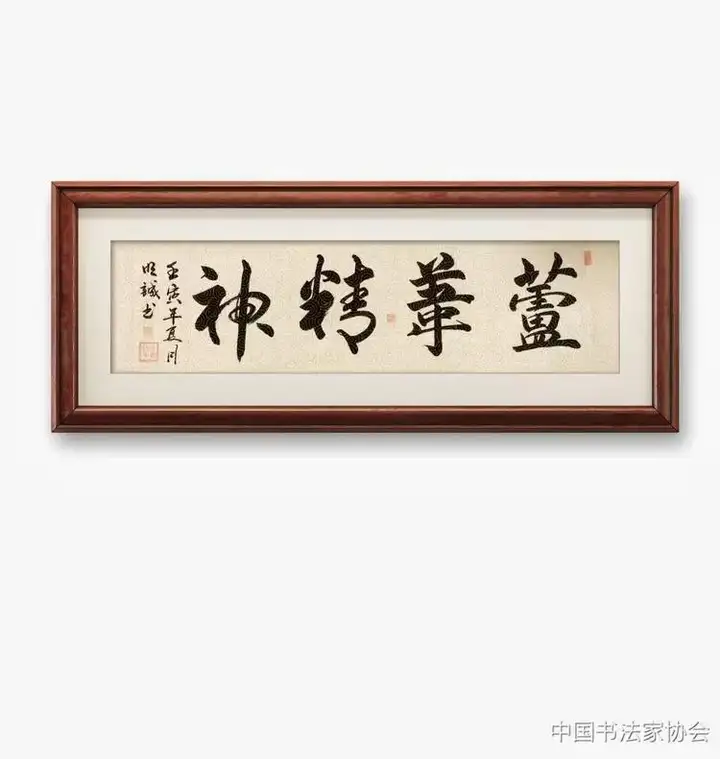 蘆葦精神
壬寅年夏月
明誠书
中国书法家协会